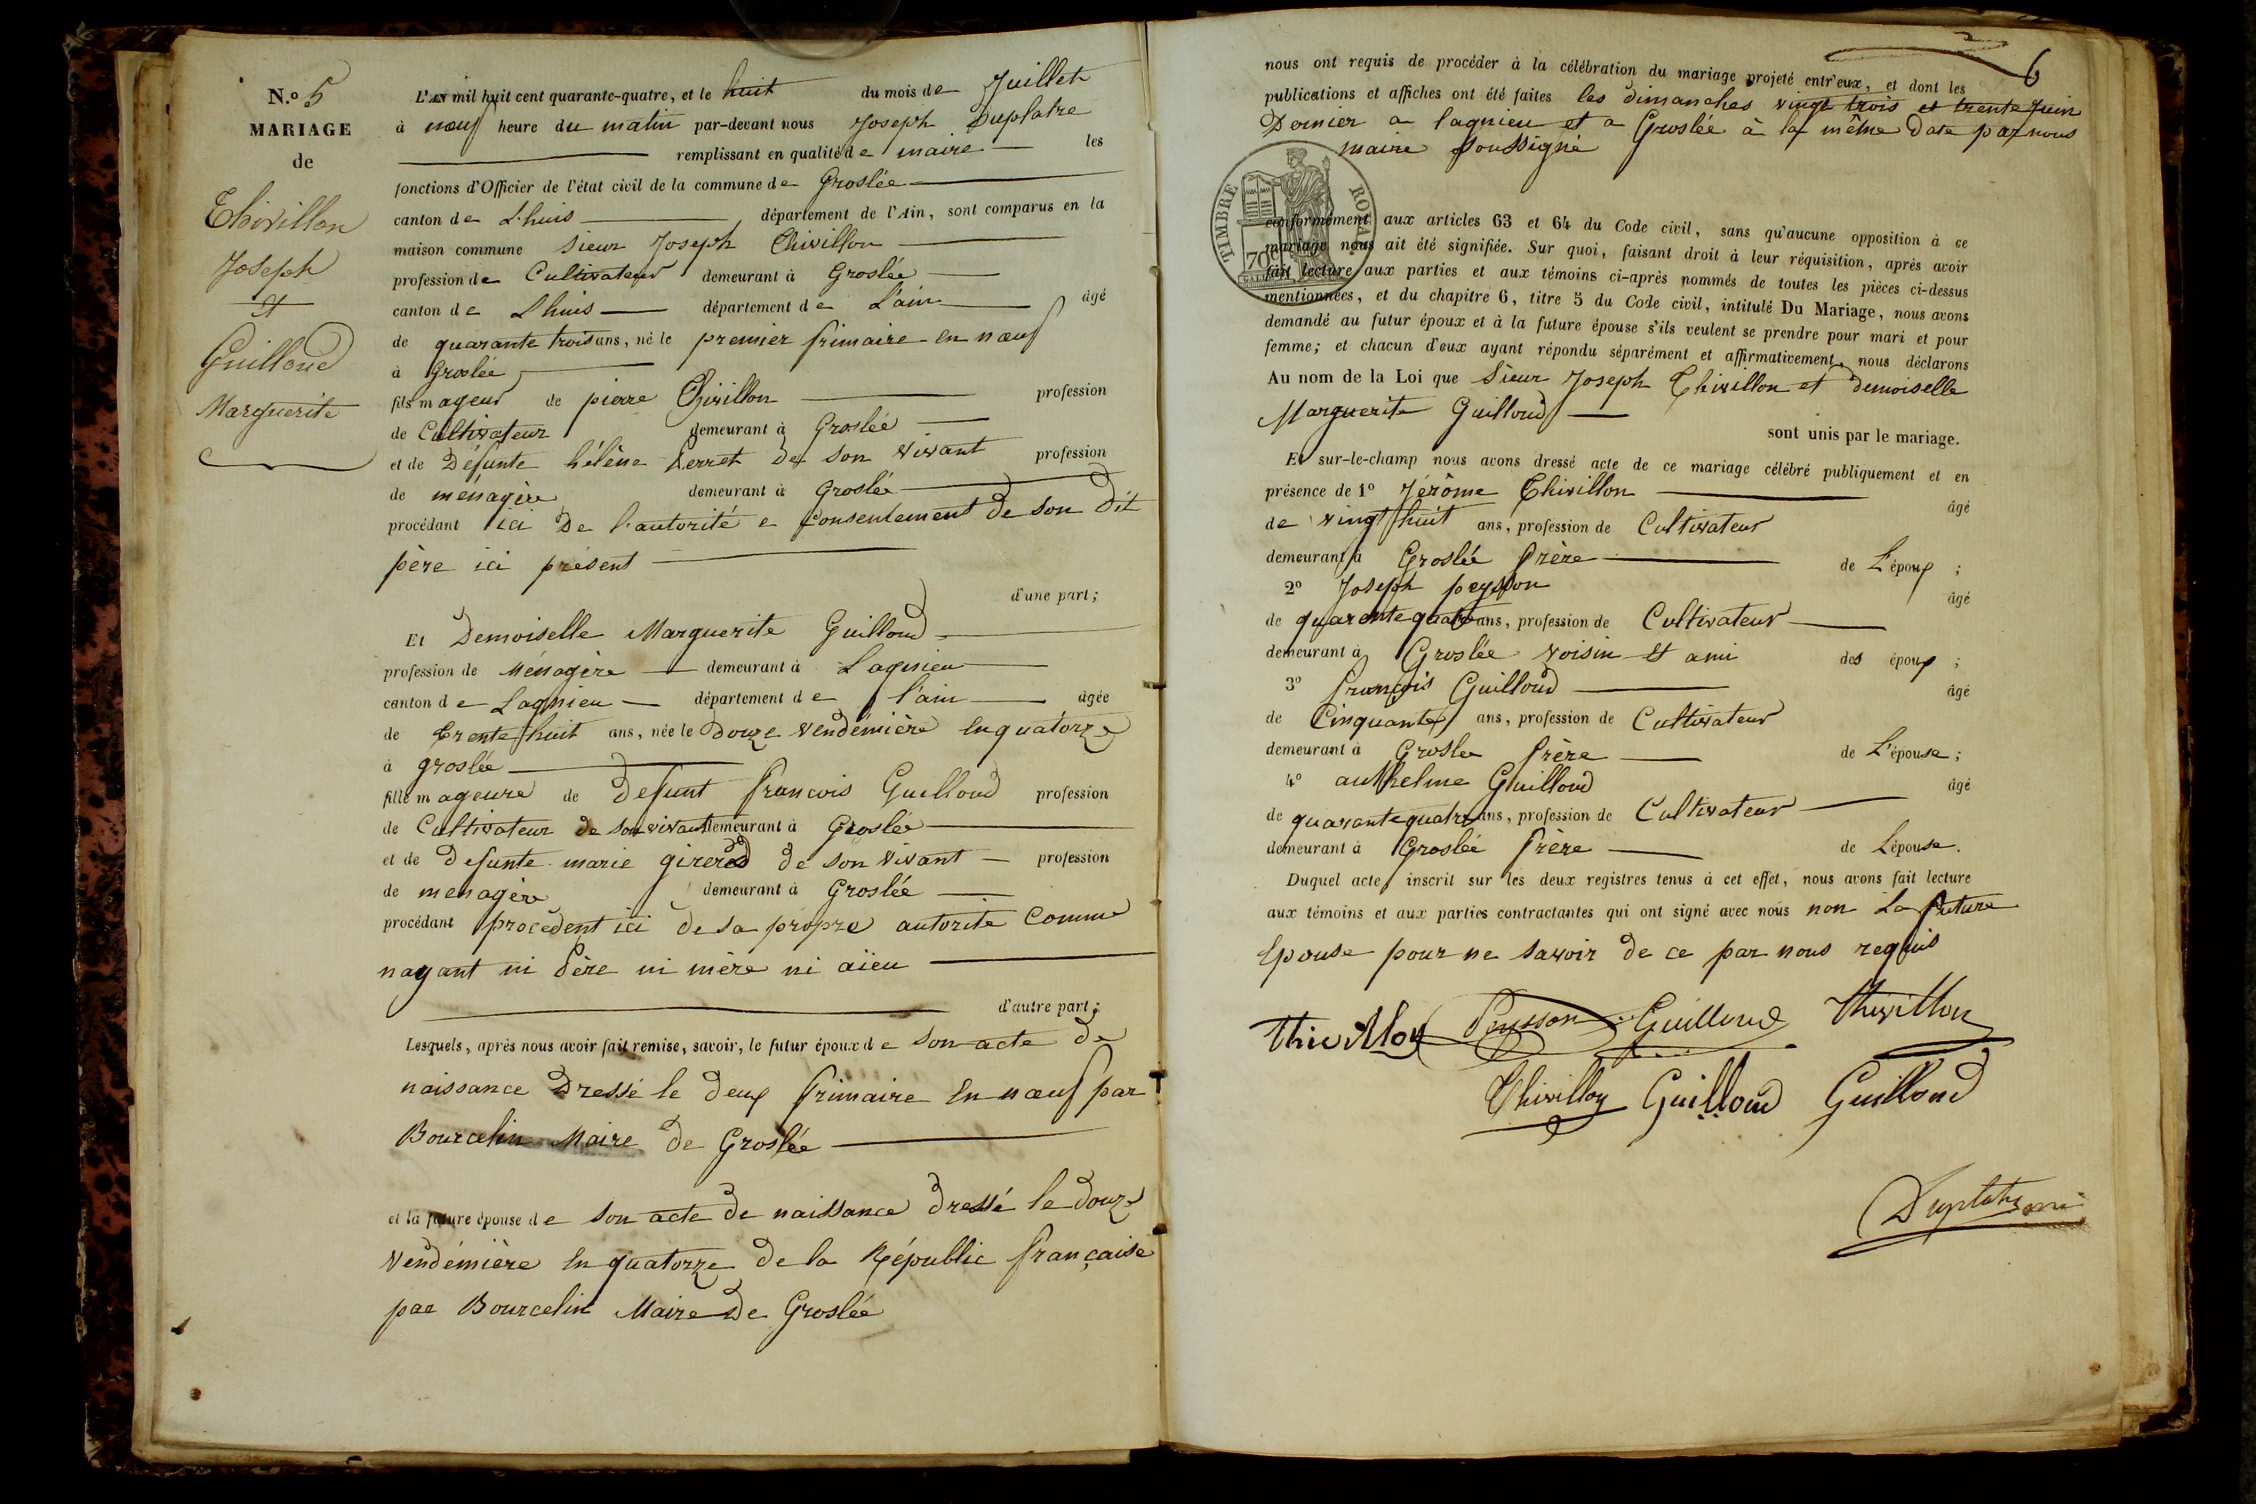 N.o 5
MARIAGE
de
Thivillon
Joseph
et
Guilloud
Marguerite
L'AN mil huit cent quarante-quatre, et le huit du mois de Juillet
à nœuf heure du matin par-devant nous Joseph Duplatre
remplissant en qualité de maire les
fonctions d'Officier de l'état civil de la commune de Groslée
canton de Lhuis département de l'Ain, sont comparus en la
maison commune Sieur Joseph Thivillon
profession de Cultivateur demeurant à Groslée
canton de Lhuis département de L'ain âgé
de quarante trois ans, né le premier frimaire en nœuf
à Groslée
fils mageur de pierre Thivillon profession
de Cultivateur demeurant à Groslée
et de Défunte hélène Perret de son vivant profession
de ménagère demeurant à Groslée
procédant ici De l'autorité e Consentement de son Dit
père ici présent
d'une part;
Et Demoiselle Marguerite Guilloud
profession de Ménagère demeurant à Lagnieu
canton de Lagnieu département de l'ain âgée
de trente huit ans, née le Douze vendémière en quatorze
à groslée
fille mageure de Defunt francois Guilloud profession
de Cultivateur de son vivant demeurant à Groslée
et de Defunte marie girerd de son vivant profession
de menagère demeurant à Groslée
procédant procèdent ici de sa propre autorite Comme
nayant ni Père ni mère ni aïeu
d'autre part;
Lesquels, après nous avoir fait remise, savoir, le futur époux de son acte de
naissance Dressé le deux frimaire en nœuf par
Bourcelin Maire de Groslée
et la future épouse de son acte de naissance dressé le douze
vendémière en quatorze de la Républic française
par Bourcelin Maire de Groslée
6
nous ont requis de procéder à la célébration du mariage projeté entr'eux, et dont les
publications et affiches ont été faites les dimanches vingt trois et trente Juin
Dernier a lagnieu et a Groslée à la même date par nous
maire soussigné
TIMBRE ROYAL
70c
conformément aux articles 63 et 64 du Code civil, sans qu'aucune opposition à ce
mariage nous ait été signifiée. Sur quoi, faisant droit à leur réquisition, après avoir
fait lecture aux parties et aux témoins ci-après nommés de toutes les pièces ci-dessus
mentionnées, et du chapitre 6, titre 5 du Code civil, intitulé Du Mariage, nous avons
demandé au futur époux et à la future épouse s'ils veulent se prendre pour mari et pour
femme; et chacun d'eux ayant répondu séparément et affirmativement, nous déclarons
Au nom de la Loi que Sieur Joseph Thivillon et demoiselle
Marguerite Guilloud
sont unis par le mariage.
Et sur-le-champ nous avons dressé acte de ce mariage célébré publiquement et en
présence de 1o Jérôme Thivillon âgé
de vingt huit ans, profession de Cultivateur
demeurant à Groslée frère de L'époux ;
2o Joseph peysson âgé
de quarente quatre ans, profession de Cultivateur
demeurant à Groslée voisin et ami des époux ;
3o françois Guilloud âgé
de Cinquante ans, profession de Cultivateur
demeurant à Groslee frère de L'épouse ;
4o authelme Guilloud âgé
de quarante quatre ans, profession de Cultivateur
demeurant à Groslée frère de Lépouse.
Duquel acte, inscrit sur les deux registres tenus à cet effet, nous avons fait lecture
aux témoins et aux parties contractantes qui ont signé avec nous non La future
Epouse pour ne savoir de ce par nous requis
Thivillon Peysson Guilloud Thivillon
Thivillon Guilloud Guilloud
Duplatre